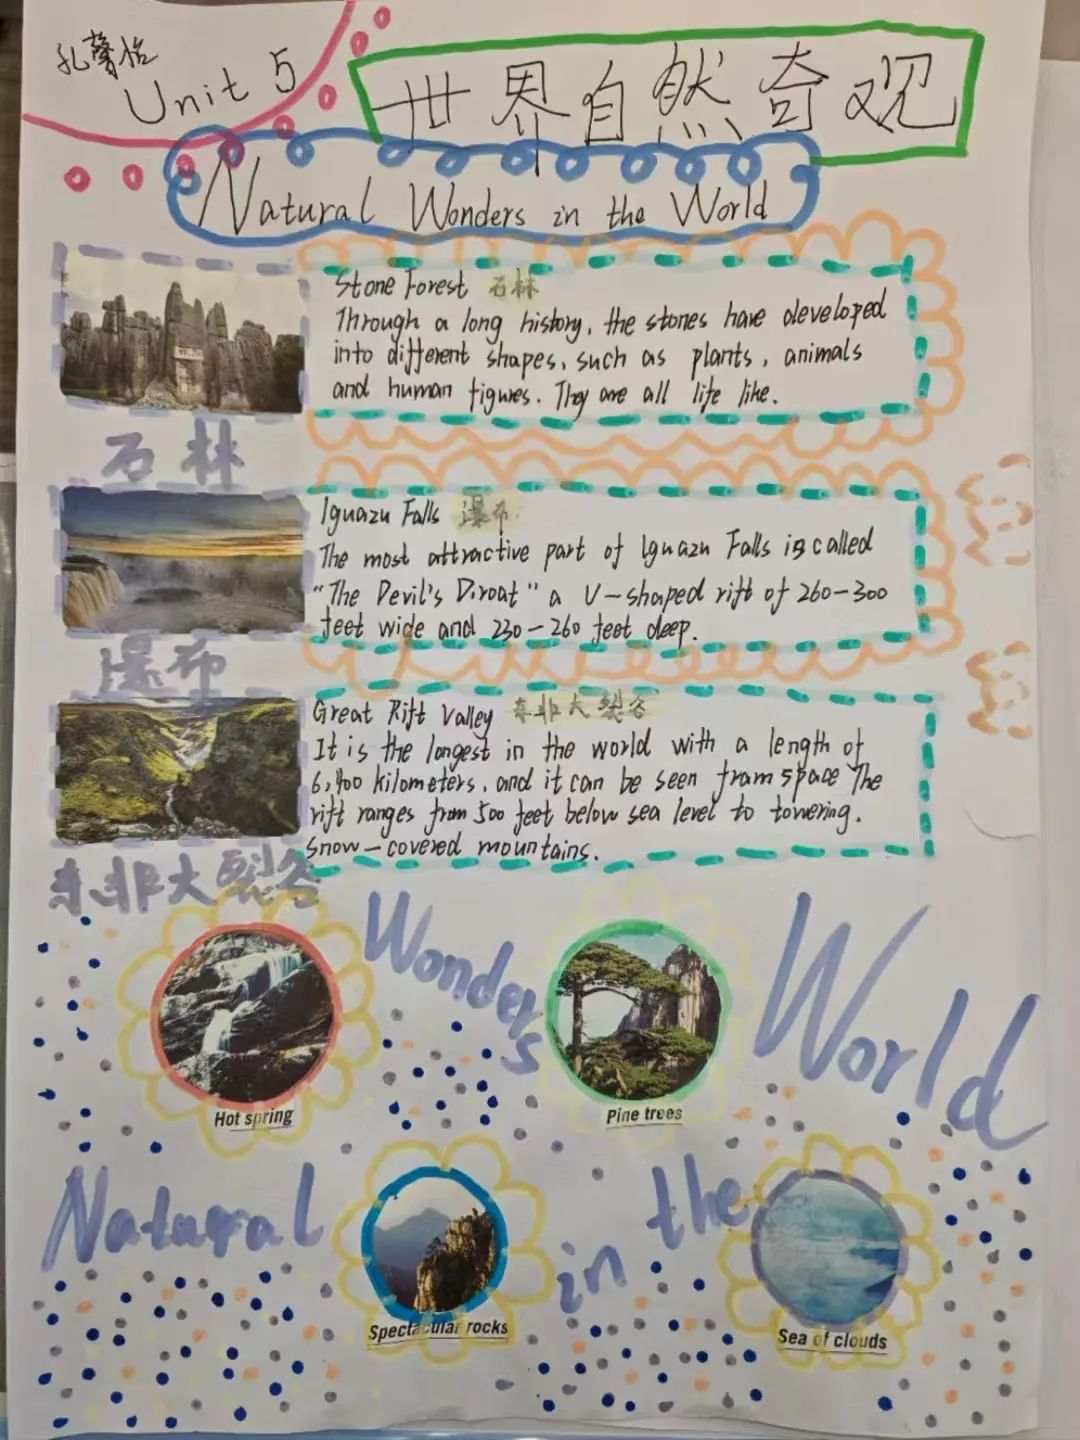 孔馨怡
Unit 5
世界自然奇观
Natural Wonders in the World
Stone Forest 石林
Through a long history, the stones have developed
into different shapes, such as plants, animals
and human figures. They are all life like.
石林
Iguazu Falls 瀑布
The most attractive part of Iguazu Falls is called
"The Devil's Diroat" a U-shaped rift of 260-300
feet wide and 230-260 feet deep.
瀑布
Great Rift Valley 东非大裂谷
It is the longest in the world with a length of
6,400 kilometers, and it can be seen fram space The
rift ranges from 500 feet below sea level to towering.
snow-covered mountains.
东非大裂谷
Wonders
World
Hot spring
Pine trees
Natural
in
the
Spectacular rocks
Sea of clouds